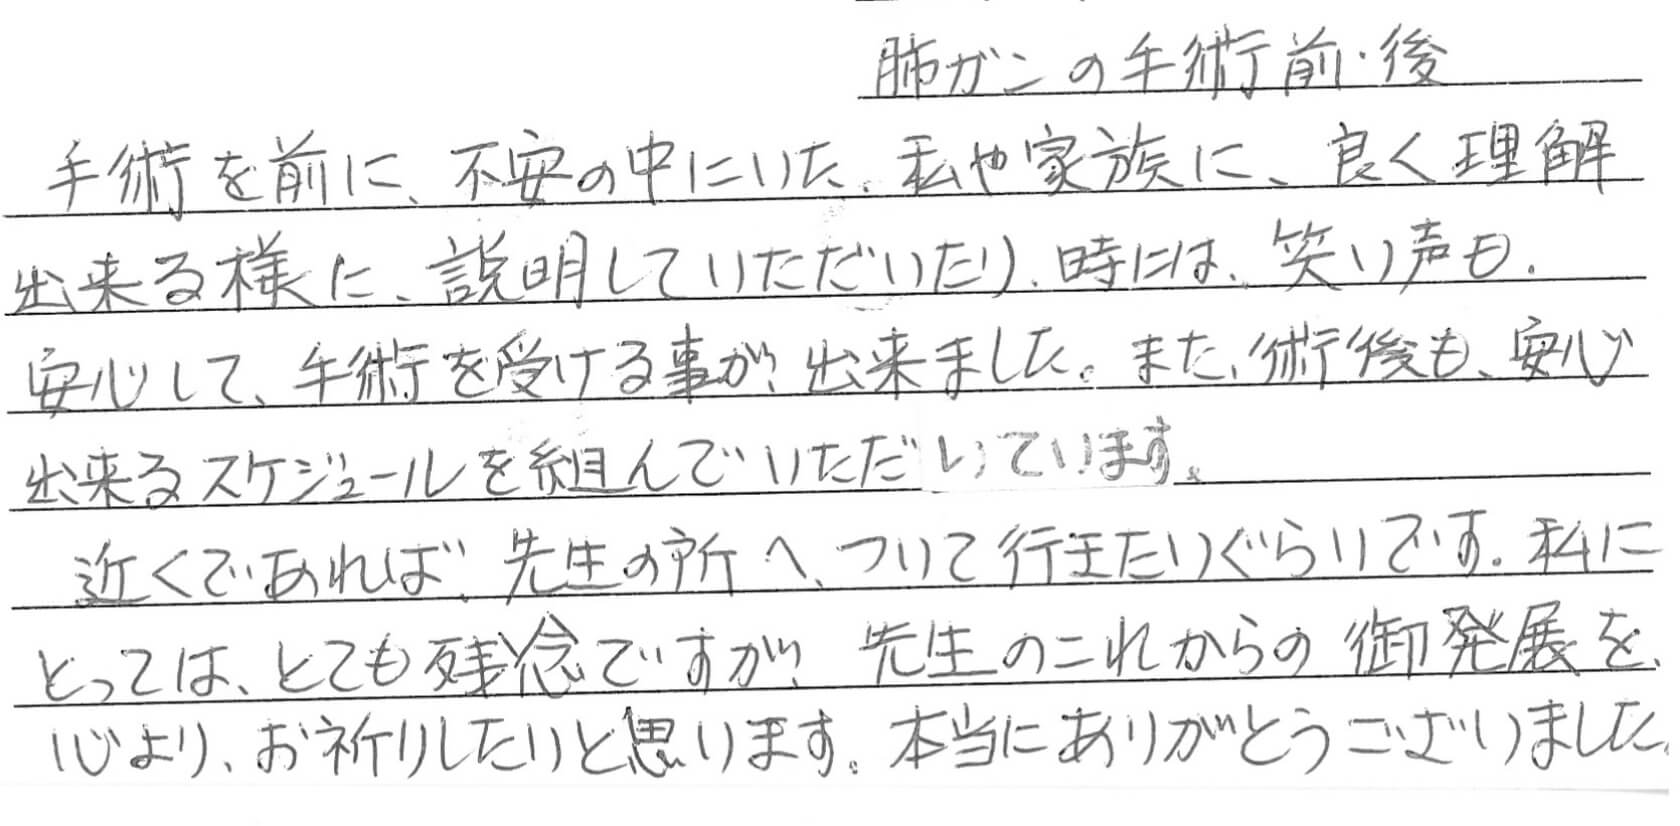 肺ガンの手術前・後
手術を前に、不安の中にいた、私や家族に、良く理解
出来る様に、説明していただいたり、時には、笑い声も、
安心して、手術を受ける事が、出来ました。また、術後も、安心
出来るスケジュールを組んでいただいています。
近くであれば、先生の所へ、ついて行きたいぐらいです。私に
とっては、とても残念ですが、先生のこれからの御発展を、
心より、お祈りしたいと思います。本当にありがとうございました。